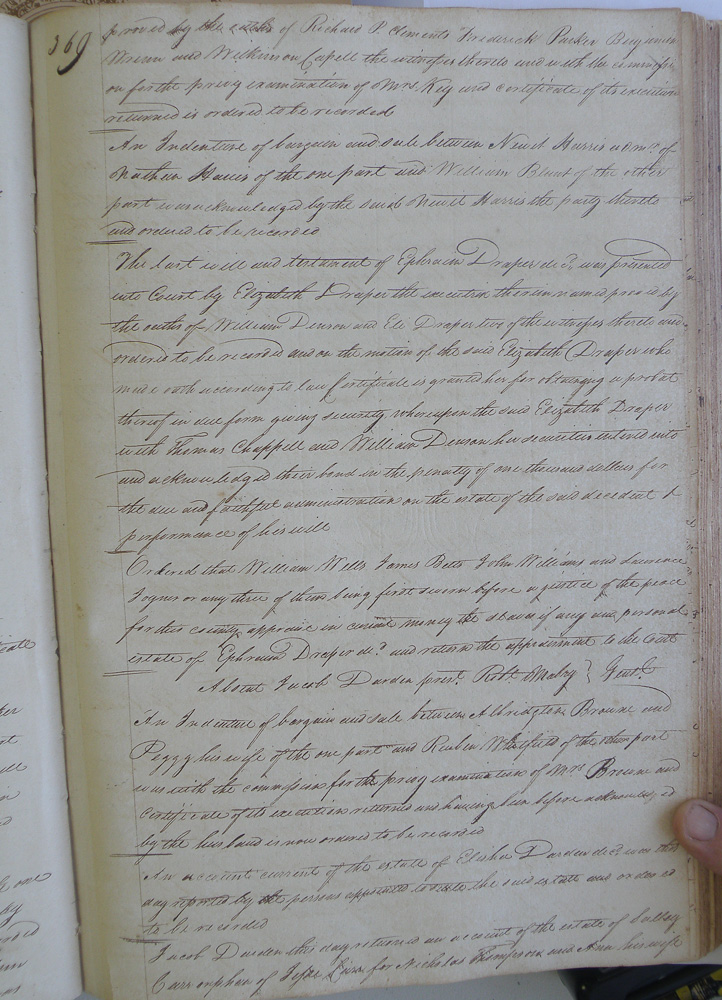 369
proved by the oaths of Richard P. Clements Frederick Parker Benjamin
and Wilkinson Capell the witnesses thereto and with the commissi
on for the privy examination of Mrs. Key and certificate of its execution
returned is ordered to be recorded
An Indenture of bargain and sale between Newit Harris admr. of
Nathan Harris of the one part and William Blunt of the other
part was acknowledged by the said Newit Harris the party thereto
and ordered to be recorded
The last will and testament of Ephraim Draper decd. was presented
into Court by Elizabeth Draper the executrix therein named proved by
the oaths of William Denson and Eli Draper two of the witnesses thereto and
ordered to be recorded and on the motion of the said Elizabeth Draper who
made oath according to law Certificate is granted her for obtaining a probat
thereof in due form giving security whereupon the said Elizabeth Draper
with Thomas Chappell and William Denson her securities entered into
and acknowledged their bond in the penalty of one thousand dollars for
the due and faithful administration on the estate of the said decedent &
performance of his will
Ordered that William Wills James Bets John Williams and Lawrence
Joyner or any three of them being first sworn before a justice of the peace
for this county appraise in current money the slaves if any and personal
estate of Ephraim Draper decd. and return the appraisment to the Court
Absent Jacob Darden prest. Robt. Mabry } Gent.
An Indenture of bargain and sale between Albridgton Browne and
Peggy his wife of the one part and Reuben Whitfield of the other part
was with the commission for the privy examination of Mrs. Browne and
certificate of its execution returned and having been before acknowledged
by the husband is now ordered to be recorded
An account current of the estate of Elisha Darden decd. was this
day reported by the persons appointed to settle the said estate and ordered
to be recorded
Jacob Darden this day returned an account of the estate of
Carr orphan of Jesse Carr for Nicholas Thompson and Ann his wife